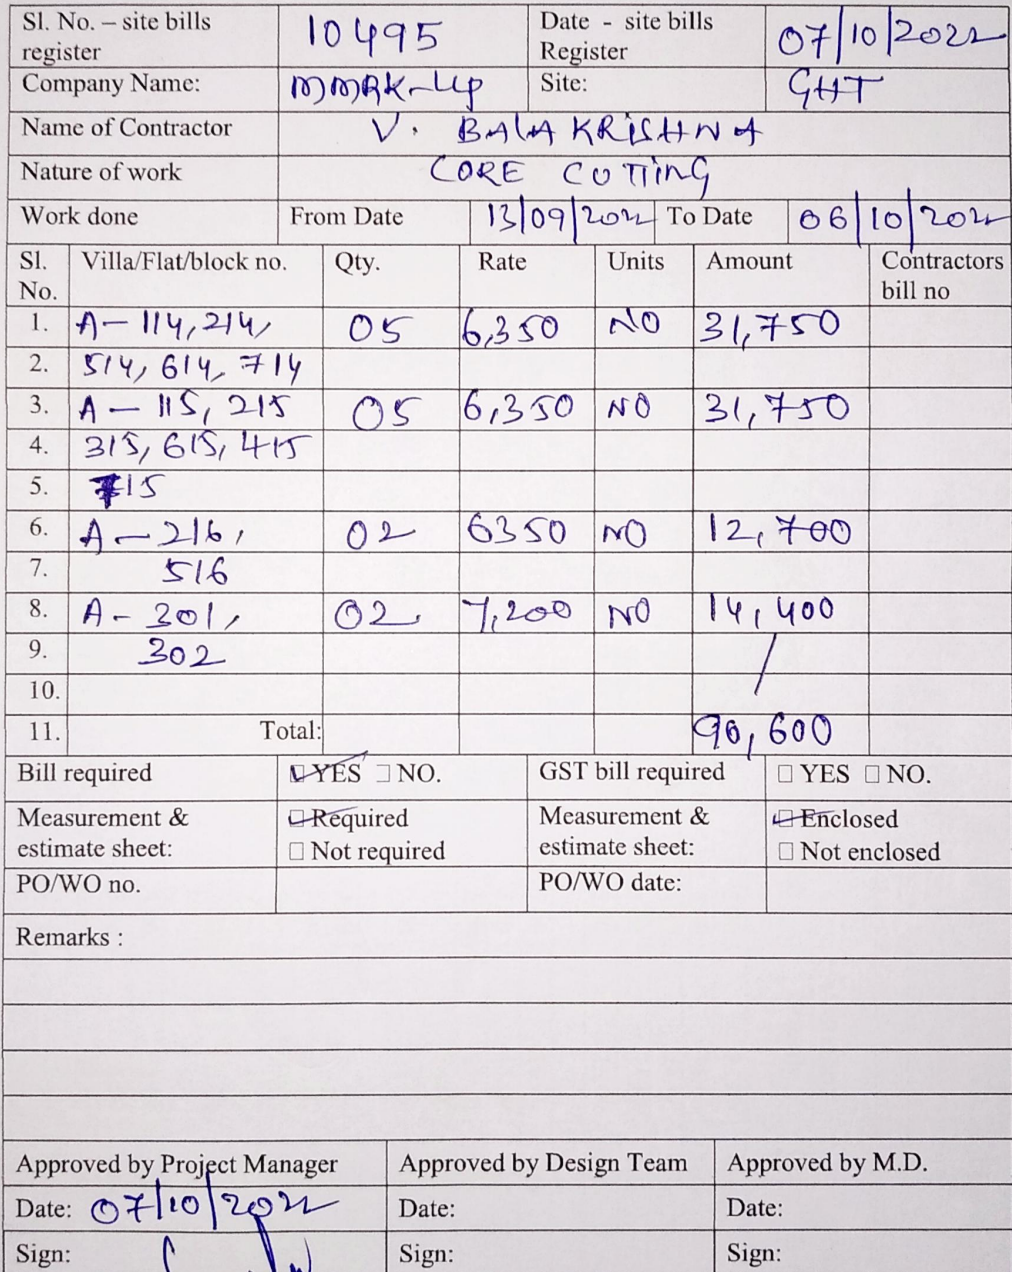 Sl. No. – site bills register 10495 Date - site bills Register 07/10/2022
Company Name: MMRK-LLP Site: GHT
Name of Contractor V. BALAKRISHNA
Nature of work CORE CUTTING
Work done From Date 13/09/2022 To Date 06/10/2022
Sl. No. Villa/Flat/block no. Qty. Rate Units Amount Contractors bill no
1. A- 114, 214, 05 6,350 NO 31,750
2. 514, 614, 714
3. A - 115, 215 05 6,350 NO 31,750
4. 315, 615, 415
5. 715
6. A - 216, 02 6350 NO 12,700
7. 516
8. A - 301, 02 7,200 NO 14,400
9. 302 /
10.
11. Total: 90,600
Bill required ☑ YES ☐ NO. GST bill required ☐ YES ☐ NO.
Measurement & estimate sheet: ☑ Required Measurement & estimate sheet: ☑ Enclosed
☐ Not required ☐ Not enclosed
PO/WO no. PO/WO date:
Remarks :
Approved by Project Manager Approved by Design Team Approved by M.D.
Date: 07/10/2022 Date: Date:
Sign: Sign: Sign: